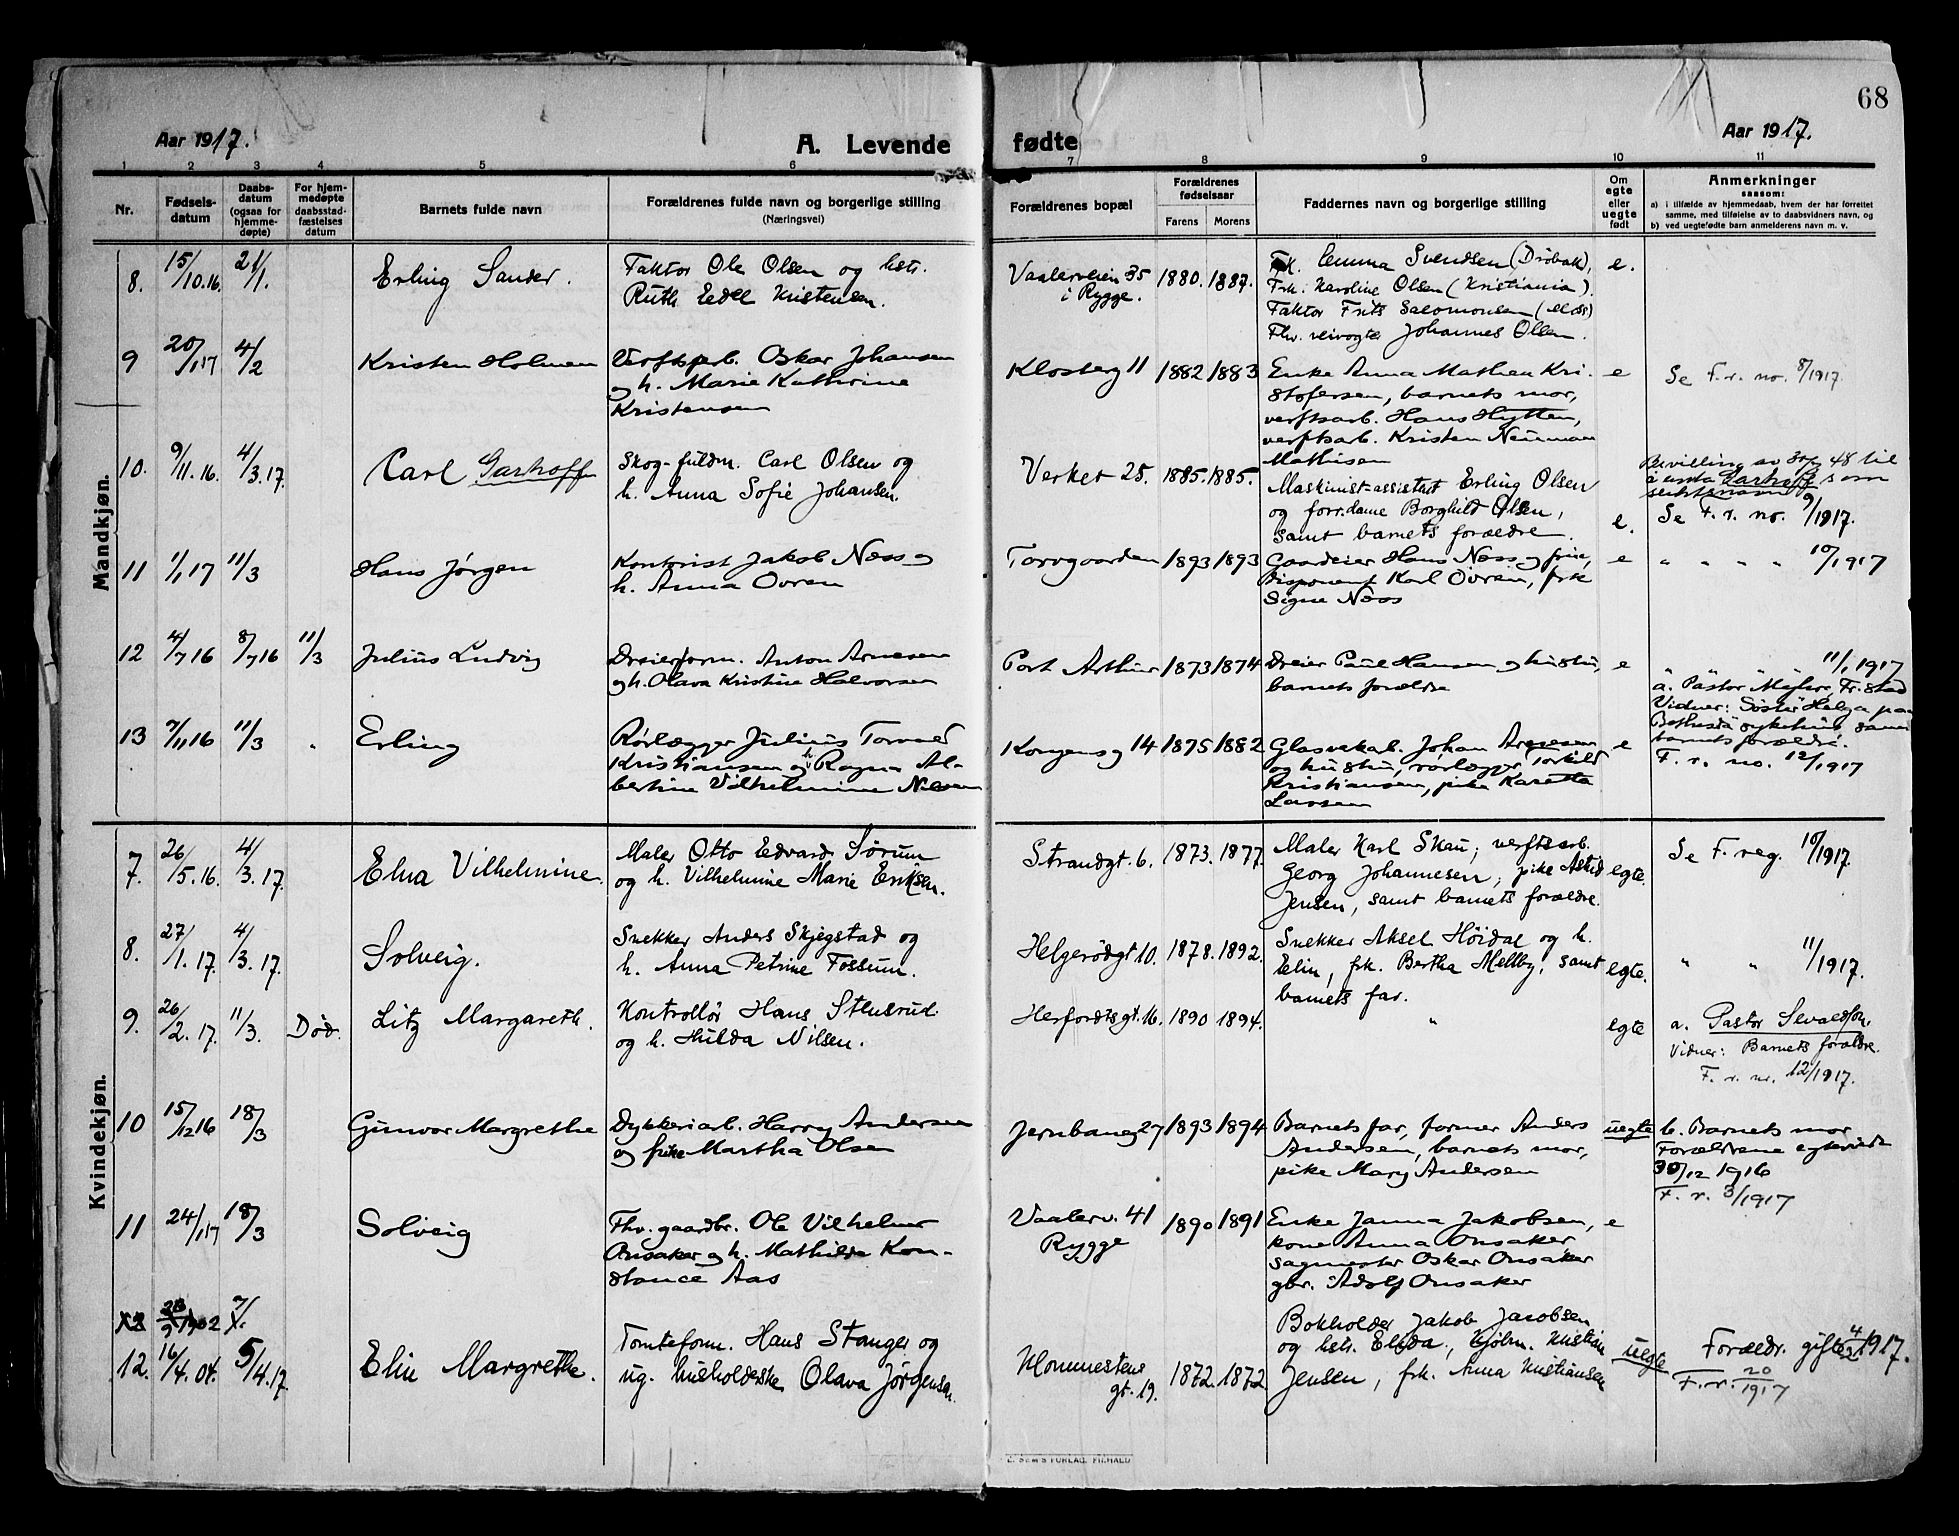 68
Aar 1917.
A. Levende fødte
Aar 1917.
1 2 3 4 5 6 7 8 9 10 11
Nr.
Fødsels-
datum
Daabs-
datum
(ogsaa for
hjemme-
døpte)
For hjem-
medøpte
daabsstad-
fæstelses
datum
Barnets fulde navn
Forældrenes fulde navn og borgerlige stilling
(Næringsvei)
Forældrenes bopæl
Forældrenes
fødselsaar
Farens Morens
Faddernes navn og borgerlige stilling
Om
egte
eller
uegte
født
Anmerkninger
saasom:
a) i tilfælde av hjemmedaab, hvem der har forrettet
samme, med tilføielse av to daabsvidners navn, og
b) ved uegtefødte barn anmelderens navn m. v.
Mandkjøn.
8. 15/10.16. 21/1.
Erling Sander.
Faktor Ole Olsen og hstr.
Ruth Edel Kristensen.
Vaalerveien 35
i Rygge.
1880. 1887.
Frk. Emma Svendsen (Drøbak),
Frk. Karoline Olsen (Kristiania).
Faktor Frits Salomonsen (Moss)
Fhv. veivogte Johannes Olsen.
e.
9 20/1 17 4/2
Kristen Holmen
Verftsarb. Oskar Johansen
og h. Marie Kathrine
Kristensen
Klosterg 11
1882 1883
Enke Anna Mathea Kri-
stofersen, barnets mor,
verftsarb. Hans Hytten,
verftsarb. Kristen Neuman
Mathisen
e
Se F. r. no. 8/1917.
10. 9/11.16. 4/3.17.
Carl Garhoff
Skog-fuldm. Carl Olsen og
h. Anna Sofie Johansen.
Verket 25.
1885. 1885.
Maskinist-assistent Erling Olsen
og forr.dame Borghild Olsen,
samt barnets forældre.
e.
48 til
Garhoff som
Se F. r. no. 9/1917.
11 1/1 17 11/3
Hans Jørgen
Kontorist Jakob Næss og
h. Anna Ovren
Torvgaarden
1893 1893
Gaardeier Hans Næss og frue,
Disponent Karl Ovren, frk
Signe Næss
e
" " " " 10/1917
12 4/7 16 8/7 16 11/3
Julius Ludvig
Dreierform. Anton Arnesen
og h. Olava Kristine Halvorsen
Port Arthur
1873 1874
Dreier Paul Hansen og hustru,
barnets forældre
e
" " " 11/1917
a. Pastor Myhre, Fr.stad
Vidner: Søster Helga paa
Bethesda sykehus samt
barnets forældre.
13 7/11 16 11/3 "
Erling
Rørlægger Julius Torvald
Kristiansen og h. Ragna Al-
bertine Vilhelmine Nilsen
Kongensg 14
1875 1882
Glasverkarb. Johan Arnesen
og hustru, rørlægger Torkild
Kristiansen, pike Karetta
Larsen
e
F. r. no. 12/1917
Kvindekjøn.
7. 26/5.16. 4/3.17.
Elna Vilhelmine.
Maler Otto Edvard Sørum
og h. Vilhelmine Marie Eriksen.
Strandgt. 6.
1873. 1877.
Maler Karl Skau; verftsarb.
Georg Johannesen; pike Astrid
Jensen, samt barnets forældre.
egte.
Se F. reg. 10/1917.
8. 27/1.17. 4/3.17.
Solveig.
Snekker Anders Skjegstad og
h. Anna Petrine Fossum.
Helgerødgt 10.
1878. 1892.
Snekker Aksel Høidal og h.
Elin, frk. Bertha Mellby, samt
barnets far.
egte.
" " 11/1917.
9. 26/2.17. 11/3. Død.
Litz Margareth.
Kontrollør Hans Stensrud
og h. Hulda Nilsen.
Herfordtsgt. 16.
1890 1894.
"
egte
a. Pastor Sevaldson.
Vidner: Barnets forældre.
F. r. nr. 12/1917.
10 15/12 16 18/3
Gunvor Margrethe
Dykkeriarb. Harry Andersen
og pike Martha Olsen
Jernbaneg 27
1893 1894
Barnets far, former Anders
Andersen, barnets mor,
pike Mary Andersen
uegte
b. Barnets mor
Forældrene egteviede
30/12 1916
F. r. 3/1917
11 24/1 17 18/3
Solveig
Fhv. gaardbr. Ole Vilhelm
Onsaker og h. Mathilde Kon-
stance Aas
Vaalerv. 41
Rygge
1890 1891
Enke Janna Jakobsen,
kone Anna Onsaker
sagmester Oskar Onsaker
gbr. Adolf Onsaker
e
12. 16/4.04. 5/4.17.
Elin Margrethe.
Tomteform. Hans Stanger og
ug. husholderske Olava Jørgensen.
Klommestens
gt. 19.
1872. 1872.
Bokholder Jakob Jacobsen
og hstr. Elida, Kjølm. Kristian
Jensen, frk. Anna Kristiansen
uegte
Forældr. gifte 4/2 1917.
F. r. 20/1917
E. SEM'S FORLAG, FR.HALD